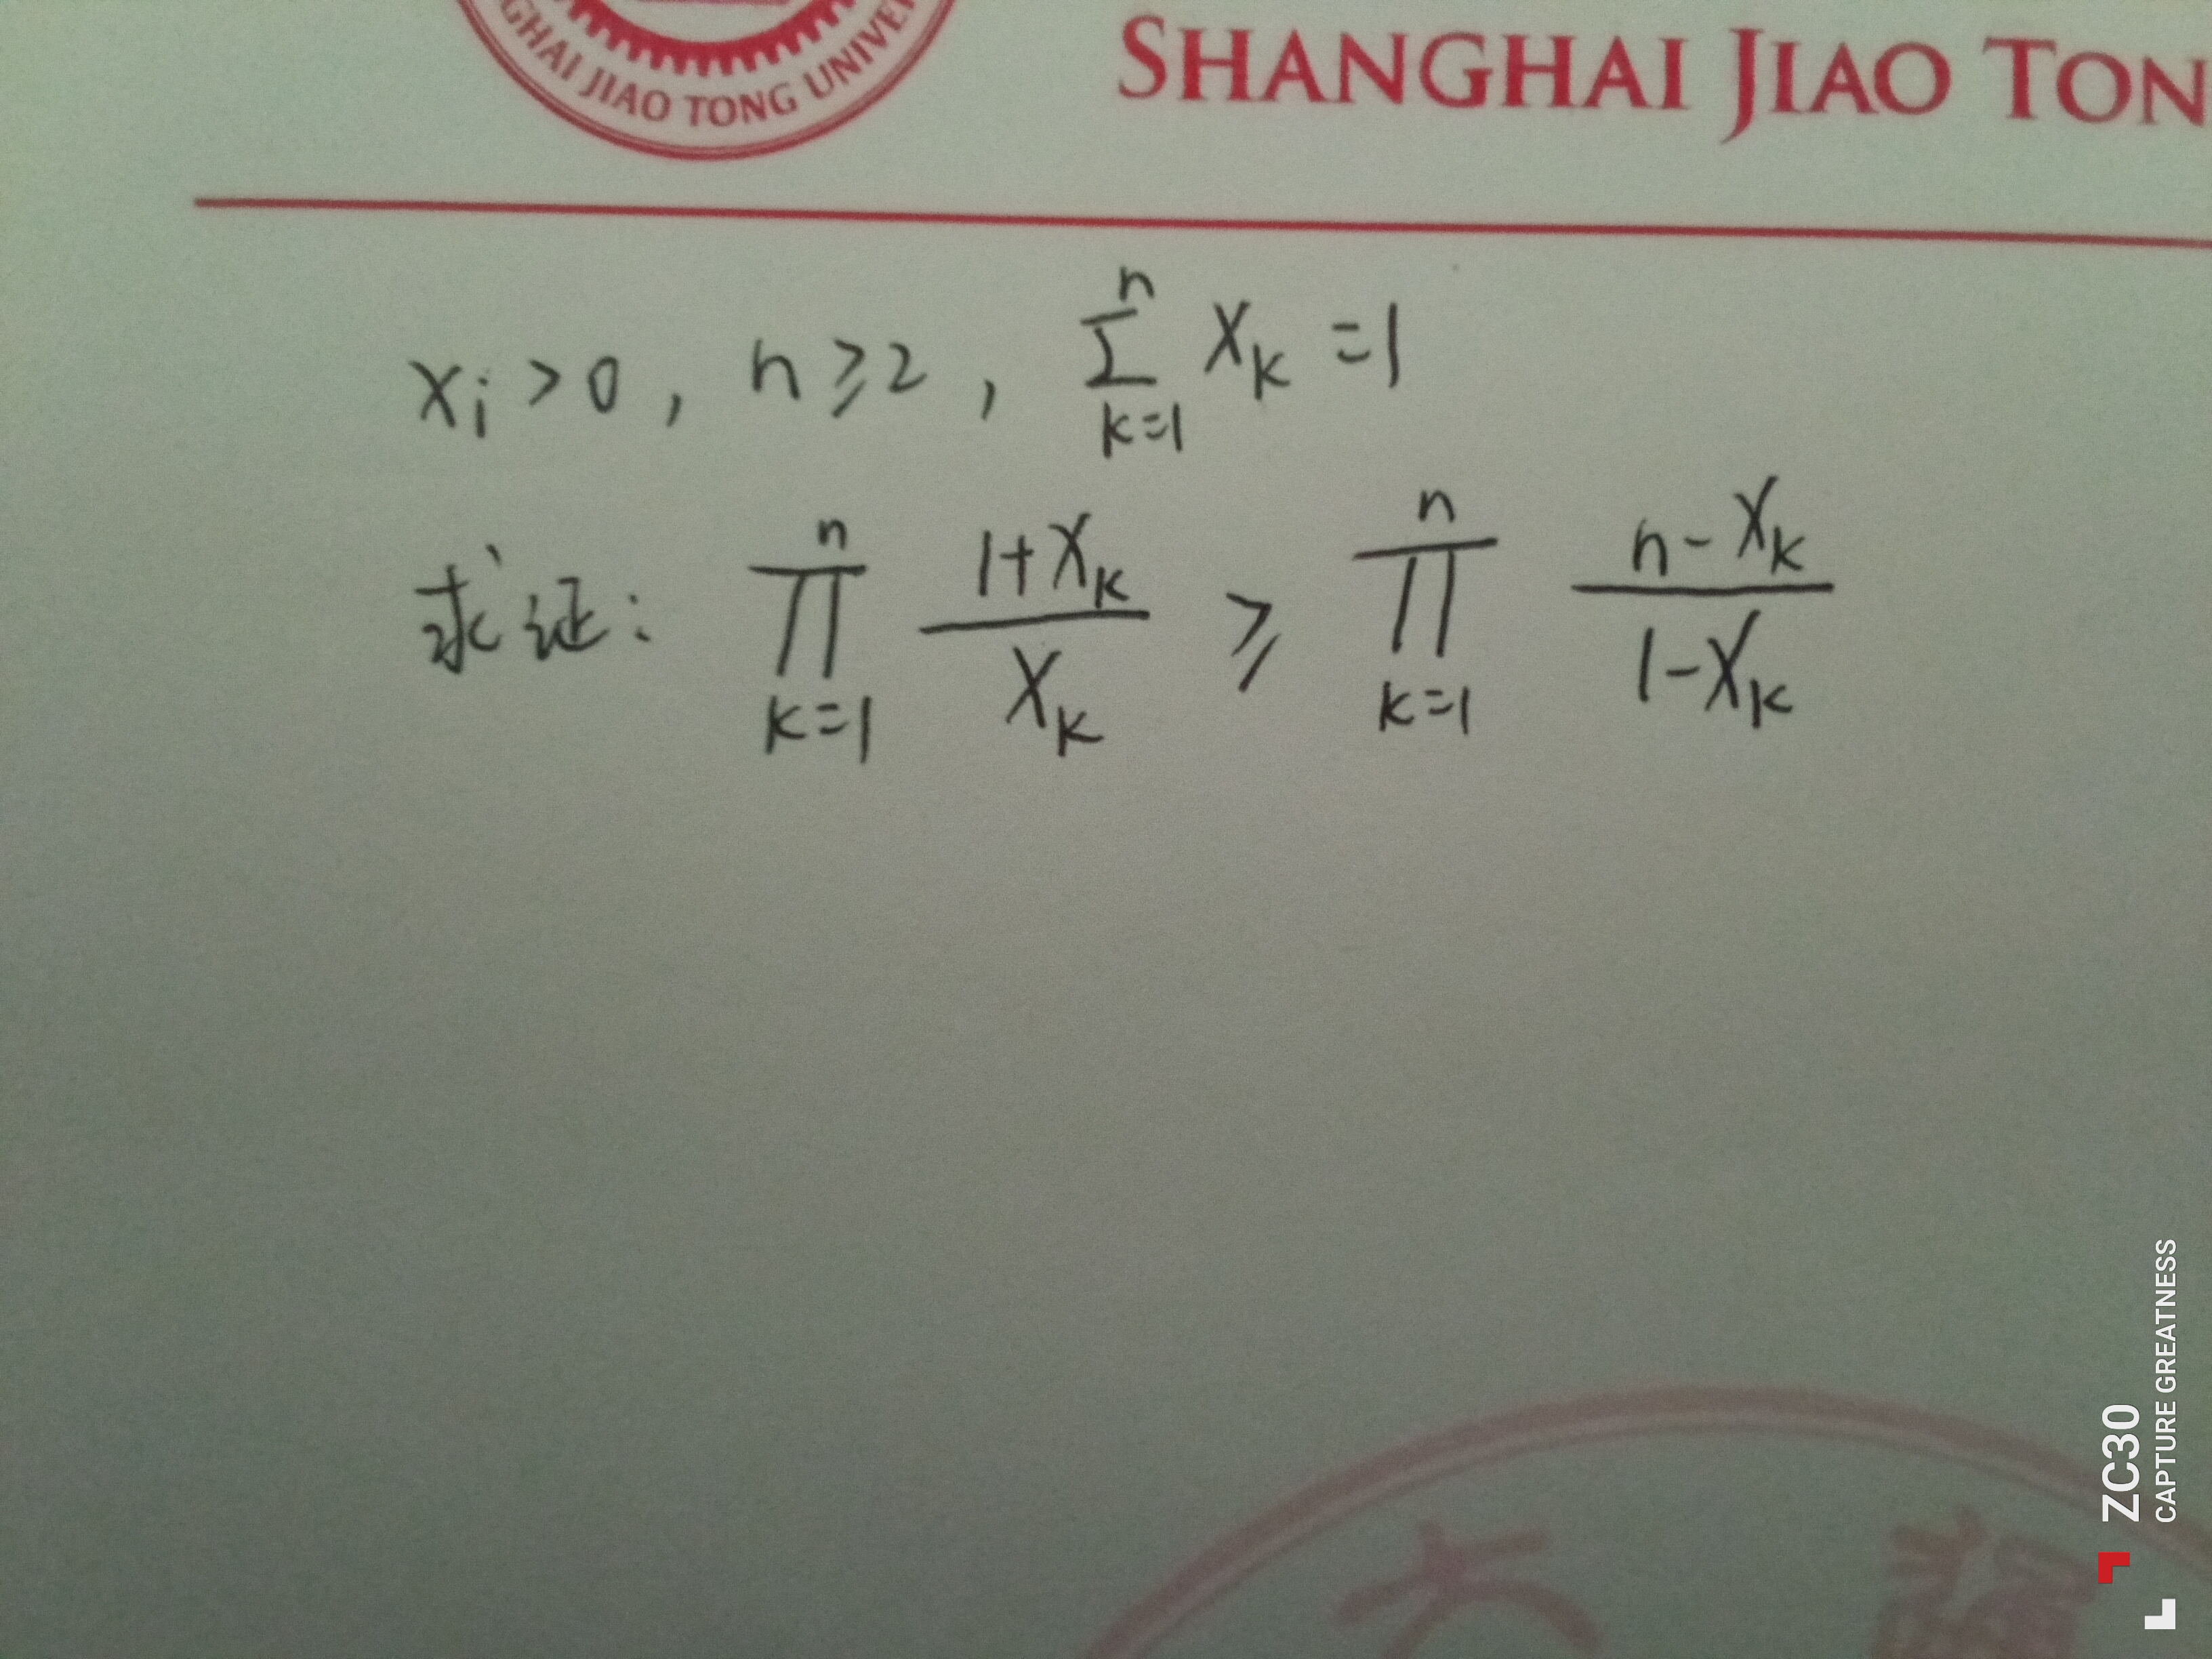 GHAI JIAO TONG UNIVER
SHANGHAI JIAO TON
xᵢ > 0 , n ≥ 2 , ∑ₖ₌₁ⁿ xₖ = 1
求证: ∏ₖ₌₁ⁿ (1+xₖ)/xₖ ≥ ∏ₖ₌₁ⁿ (n-xₖ)/(1-xₖ)
ZC30
CAPTURE GREATNESS